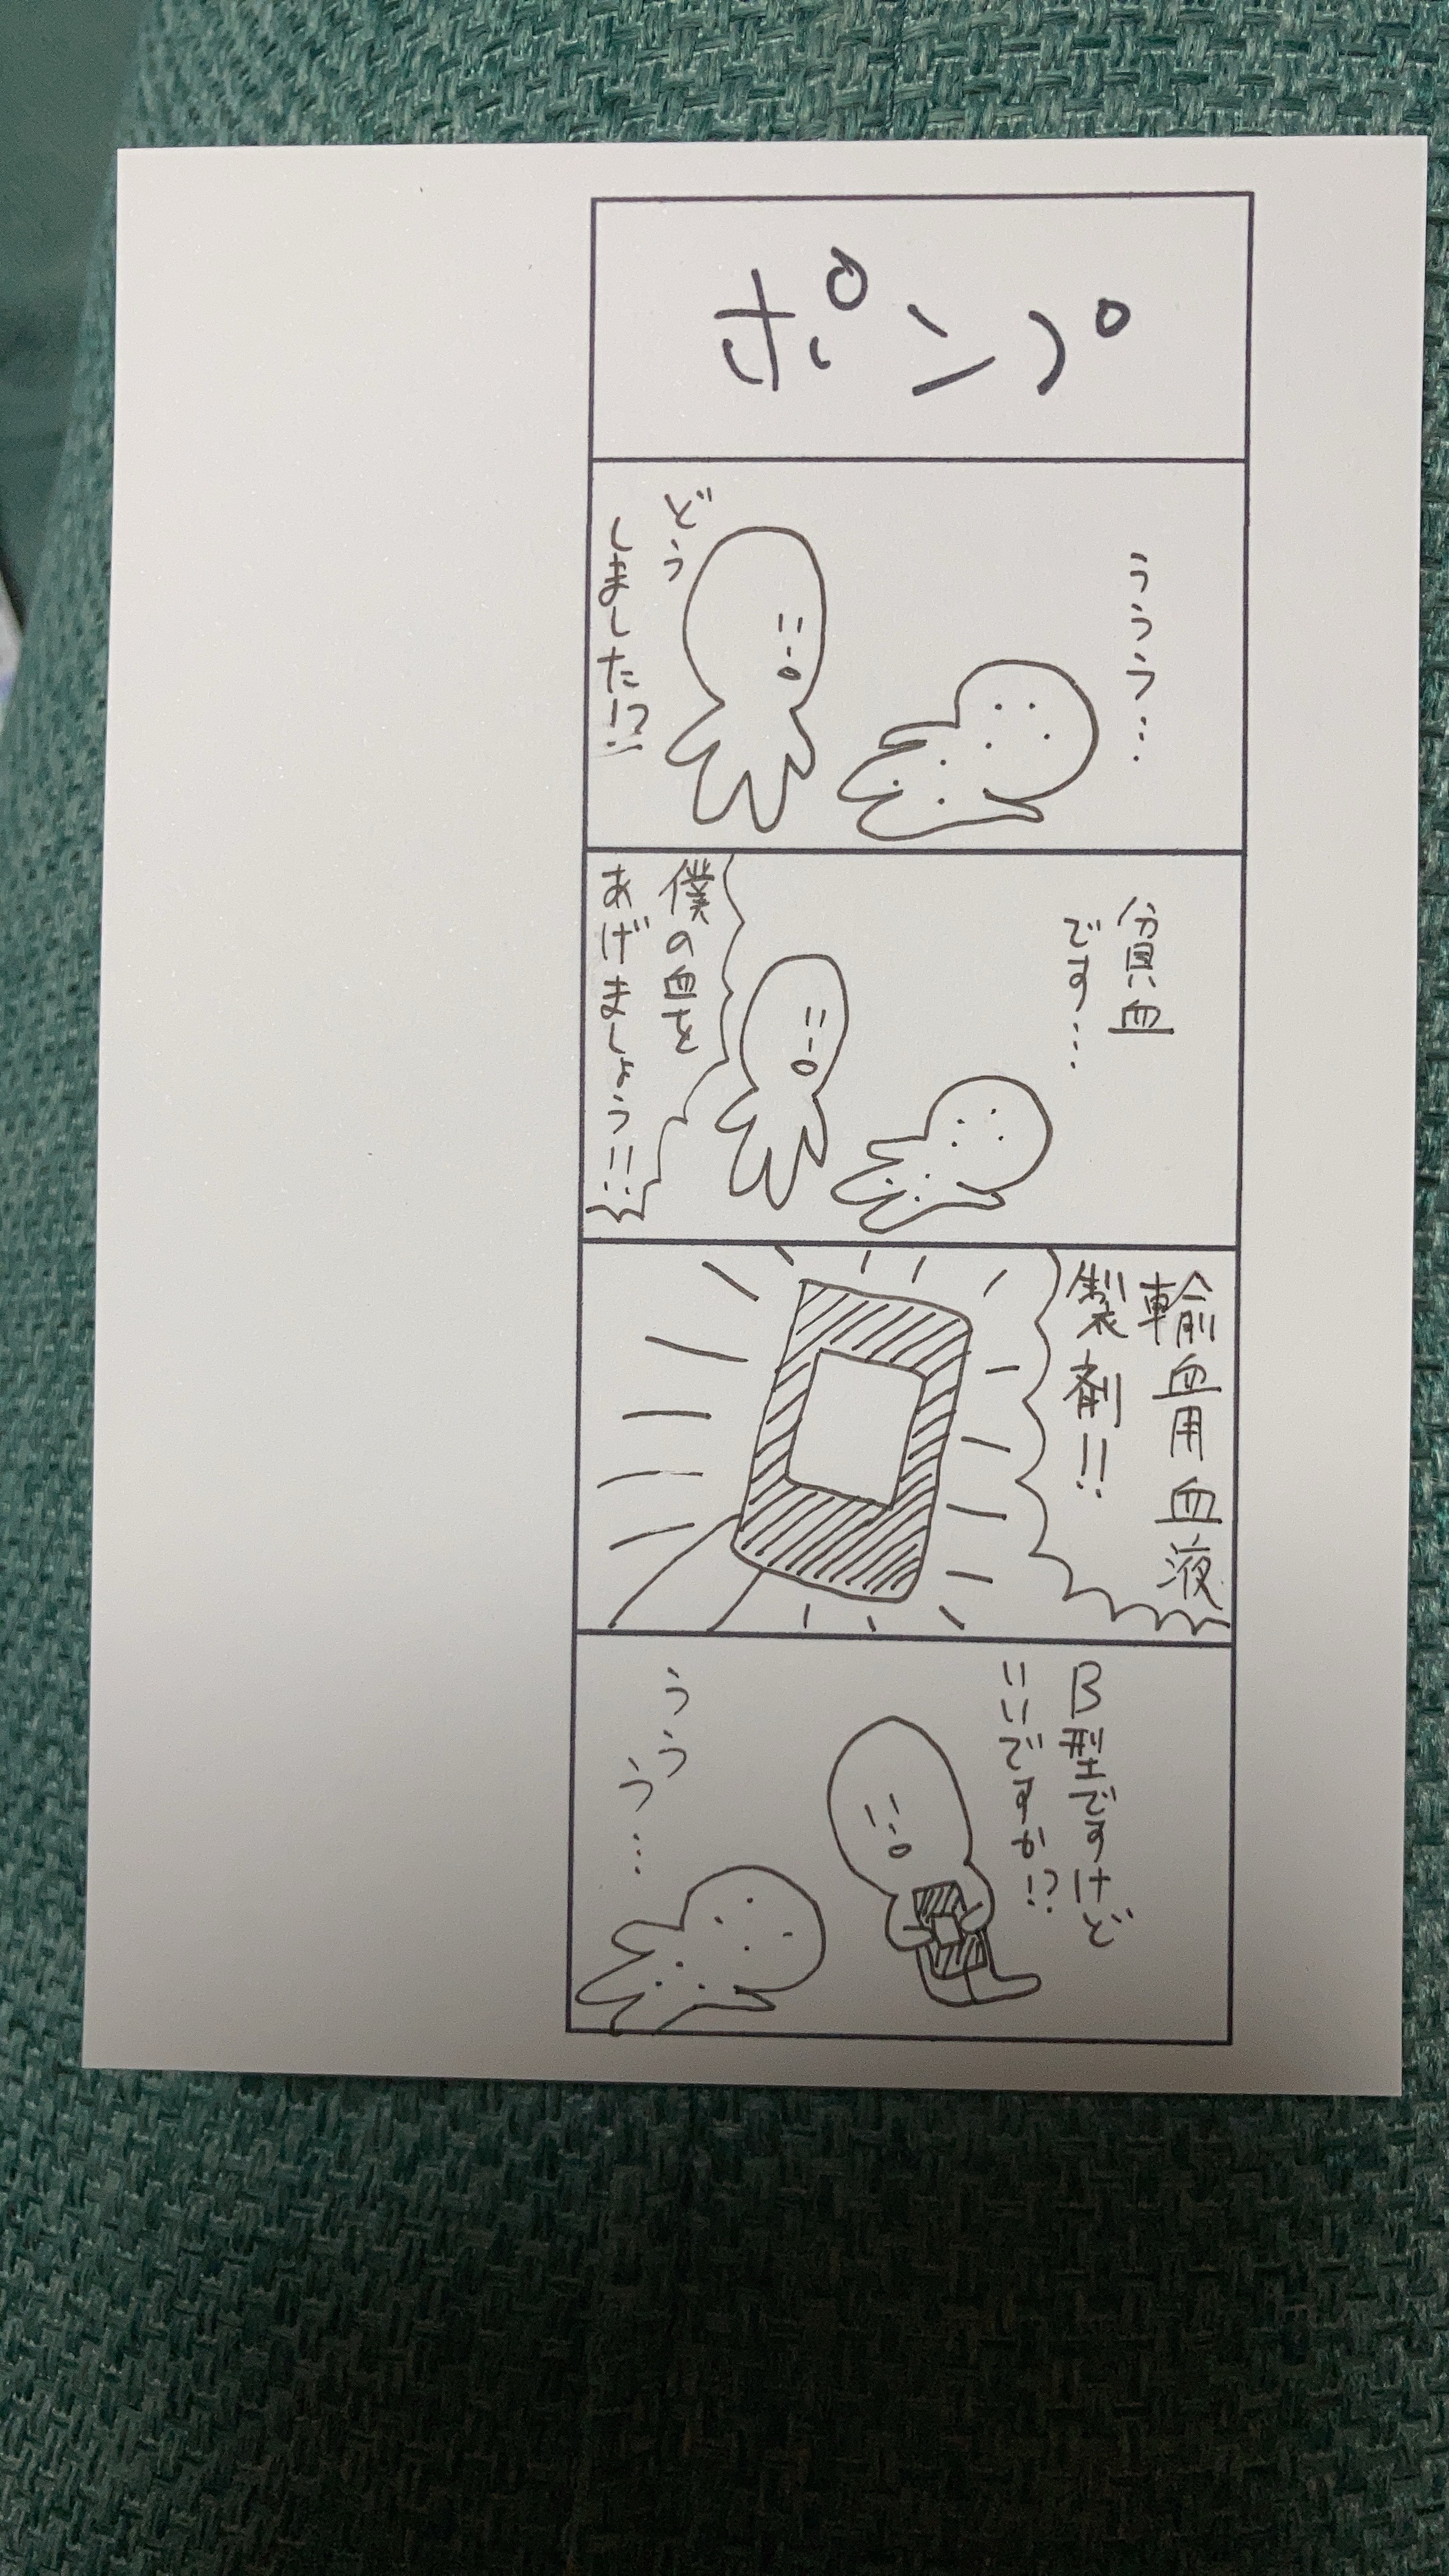 ポンプ
ううう…
どう
しました!?
貧血
です…
僕の血を
あげましょう!!
輸血用血液
製剤!!
B型ですけど
いいですか!?
うう
う…